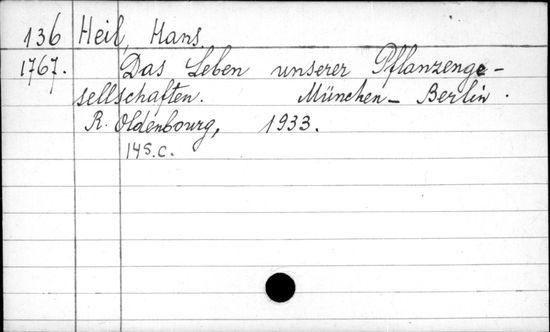 136 Heil, Hans.
1767. Das Leben unserer Pflanzenge-
sellschaften. München - Berlin.
R. Oldenbourg, 1933.
148.c.